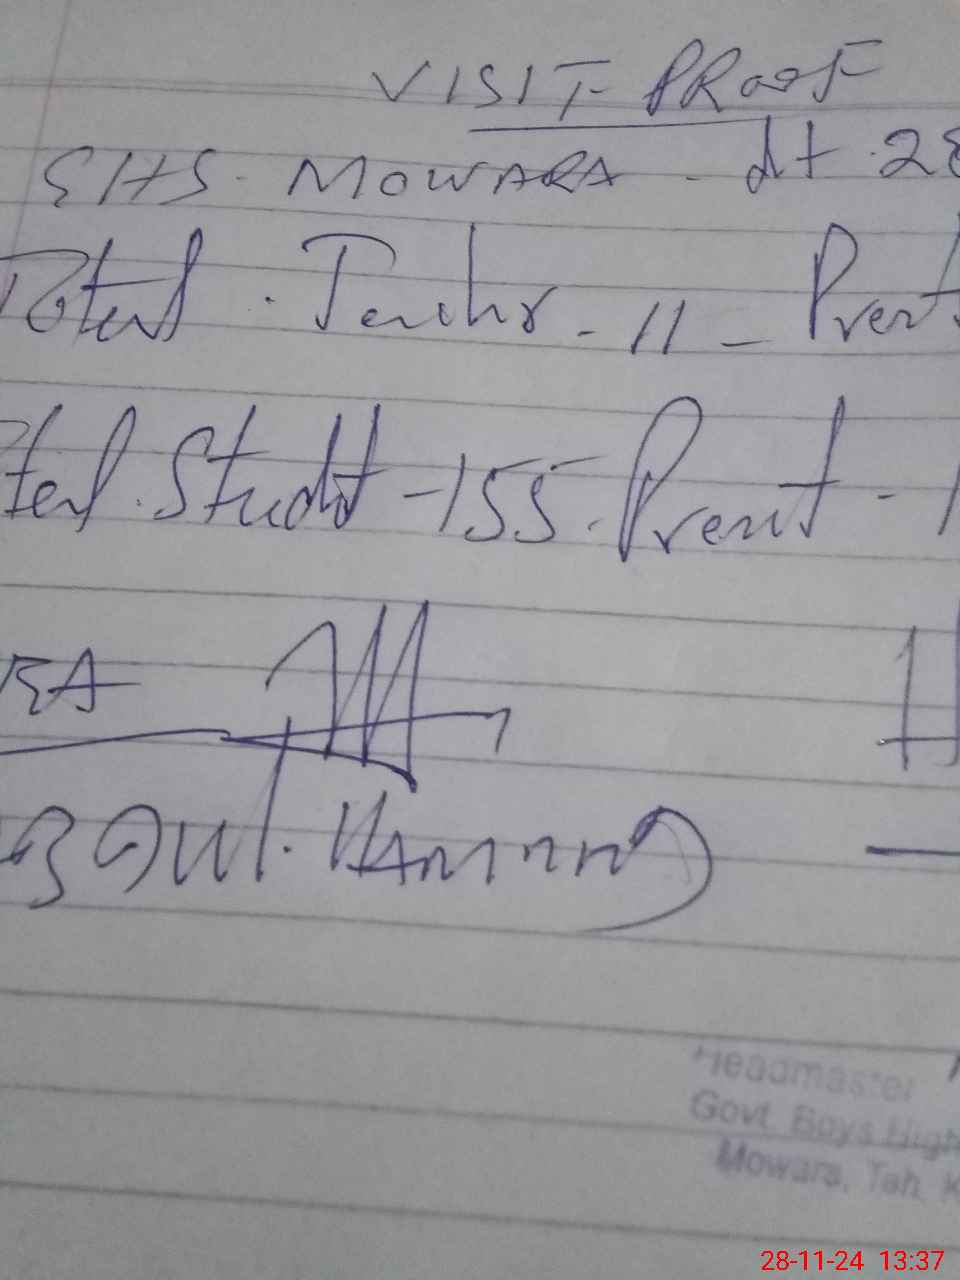 VISIT PROOF
GHS. MOWARA - dt. 28
Total. Teachr - 11 - Prent
tal. Studt - 155. Prent - 1
EA
Headmaster
Govt. Boys High
Mowara, Teh. K
28-11-24 13:37